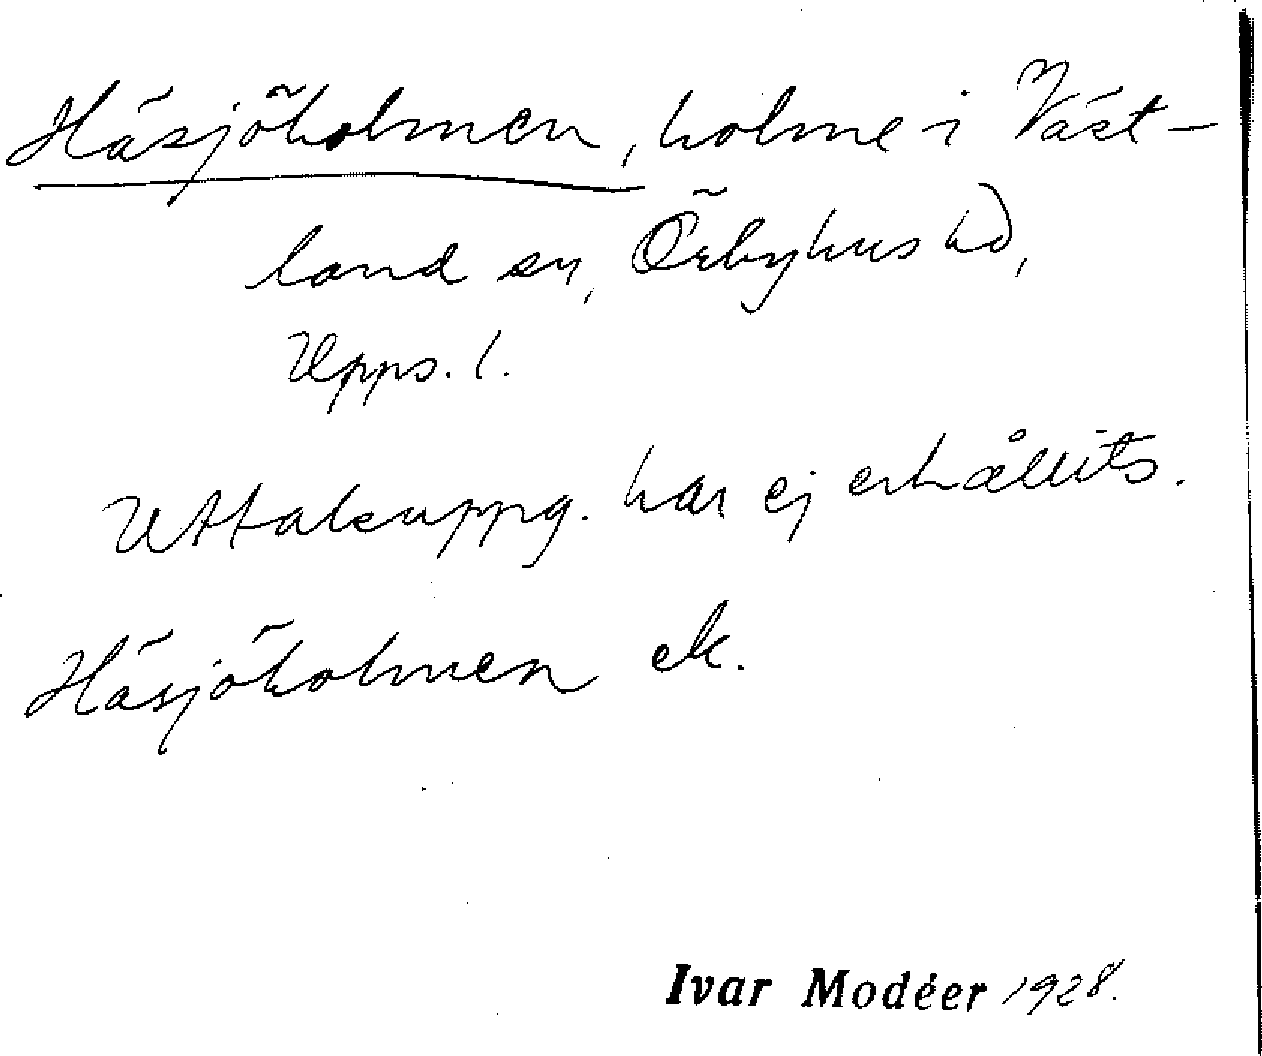 Häsjöholmen, holme i Väst-
land sn, Örbyhus hd,
Upps. l.
Uttalsuppg. har ej erhållits.
Häsjöholmen ek.
Ivar Modéer 1928.